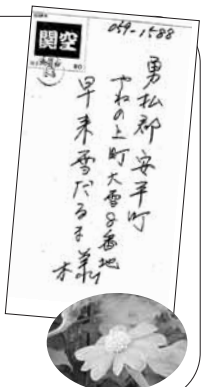 059-1588
関空
勇払郡安平町
やねの上町大雪8番地
早来雪だるま様